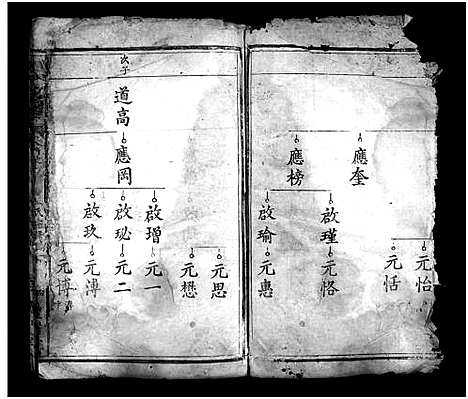 應奎
應榜
啟瑾
啟瑜
元怡
元恬
元恪
元惠
次子
道高
應岡
啟增
啟珌
啟玖
元思
元懋
元一
元二
元溥
元博